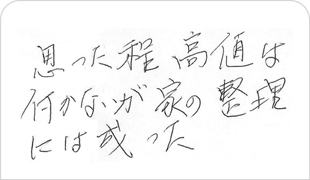 思った程 高値は
付かないが 家の整理
には成った